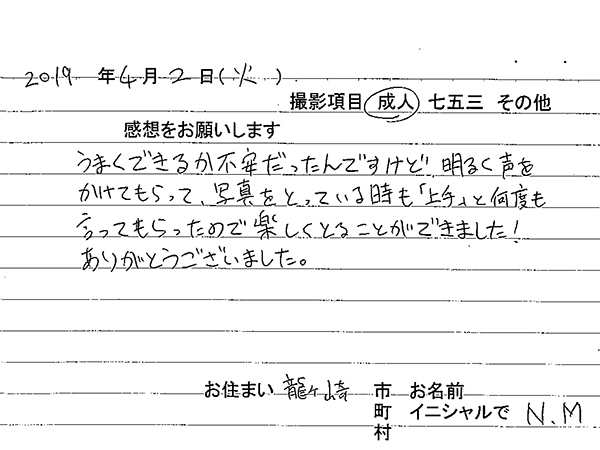 2019 年4月2日(火)
撮影項目 成人 七五三 その他
感想をお願いします
うまくできるか不安だったんですけど、明るく声を
かけてもらって、写真をとっている時も「上手」と何度も
言ってもらったので楽しくとることができました!
ありがとうございました。
お住まい 龍ヶ崎 市 お名前
町 イニシャルで N.M
村